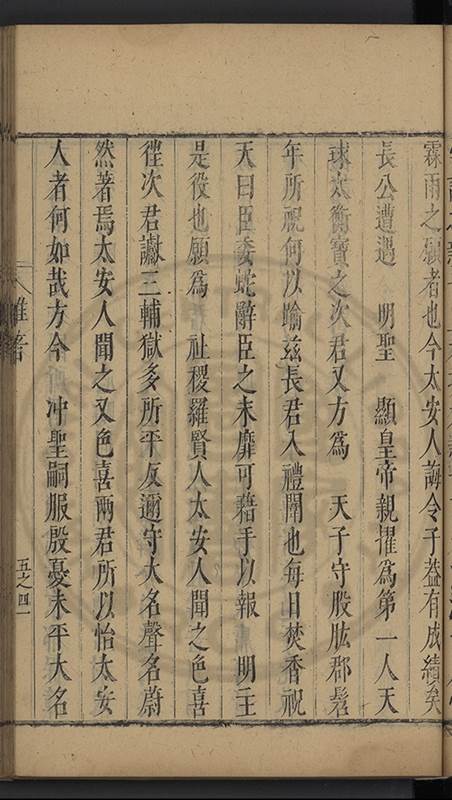 霖雨之願者也今太安人誨令子蓋有成績矣
長公遭遇 明聖 顯皇帝親擢爲第一人天
球太衡寶之次君又方爲 天子守股肱郡髫
年所祝何以踰茲長君入禮闈也每日焚香祝
天曰臣委蛇辭臣之未靡可藉手以報 明主
是役也願爲 社稷羅賢人太安人聞之色喜
徃次君讞三輔獄多所平反邇守大名聲名蔚
然著焉太安人聞之又色喜兩君所以怡太安
人者何如哉方今 冲聖嗣服殷憂未平大名
雜著
五之四一